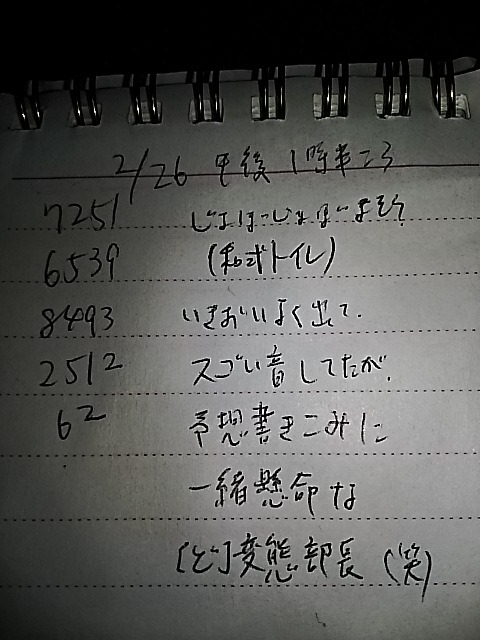 2/26 午後1時半ころ
7251 じょぼーじょぼー
6539 (和式トイレ)
8493 いきおいよく出て、
2512 スゴい音してたが、
62 予想書きこみに
一緒懸命な
[ど]変態部長(笑)